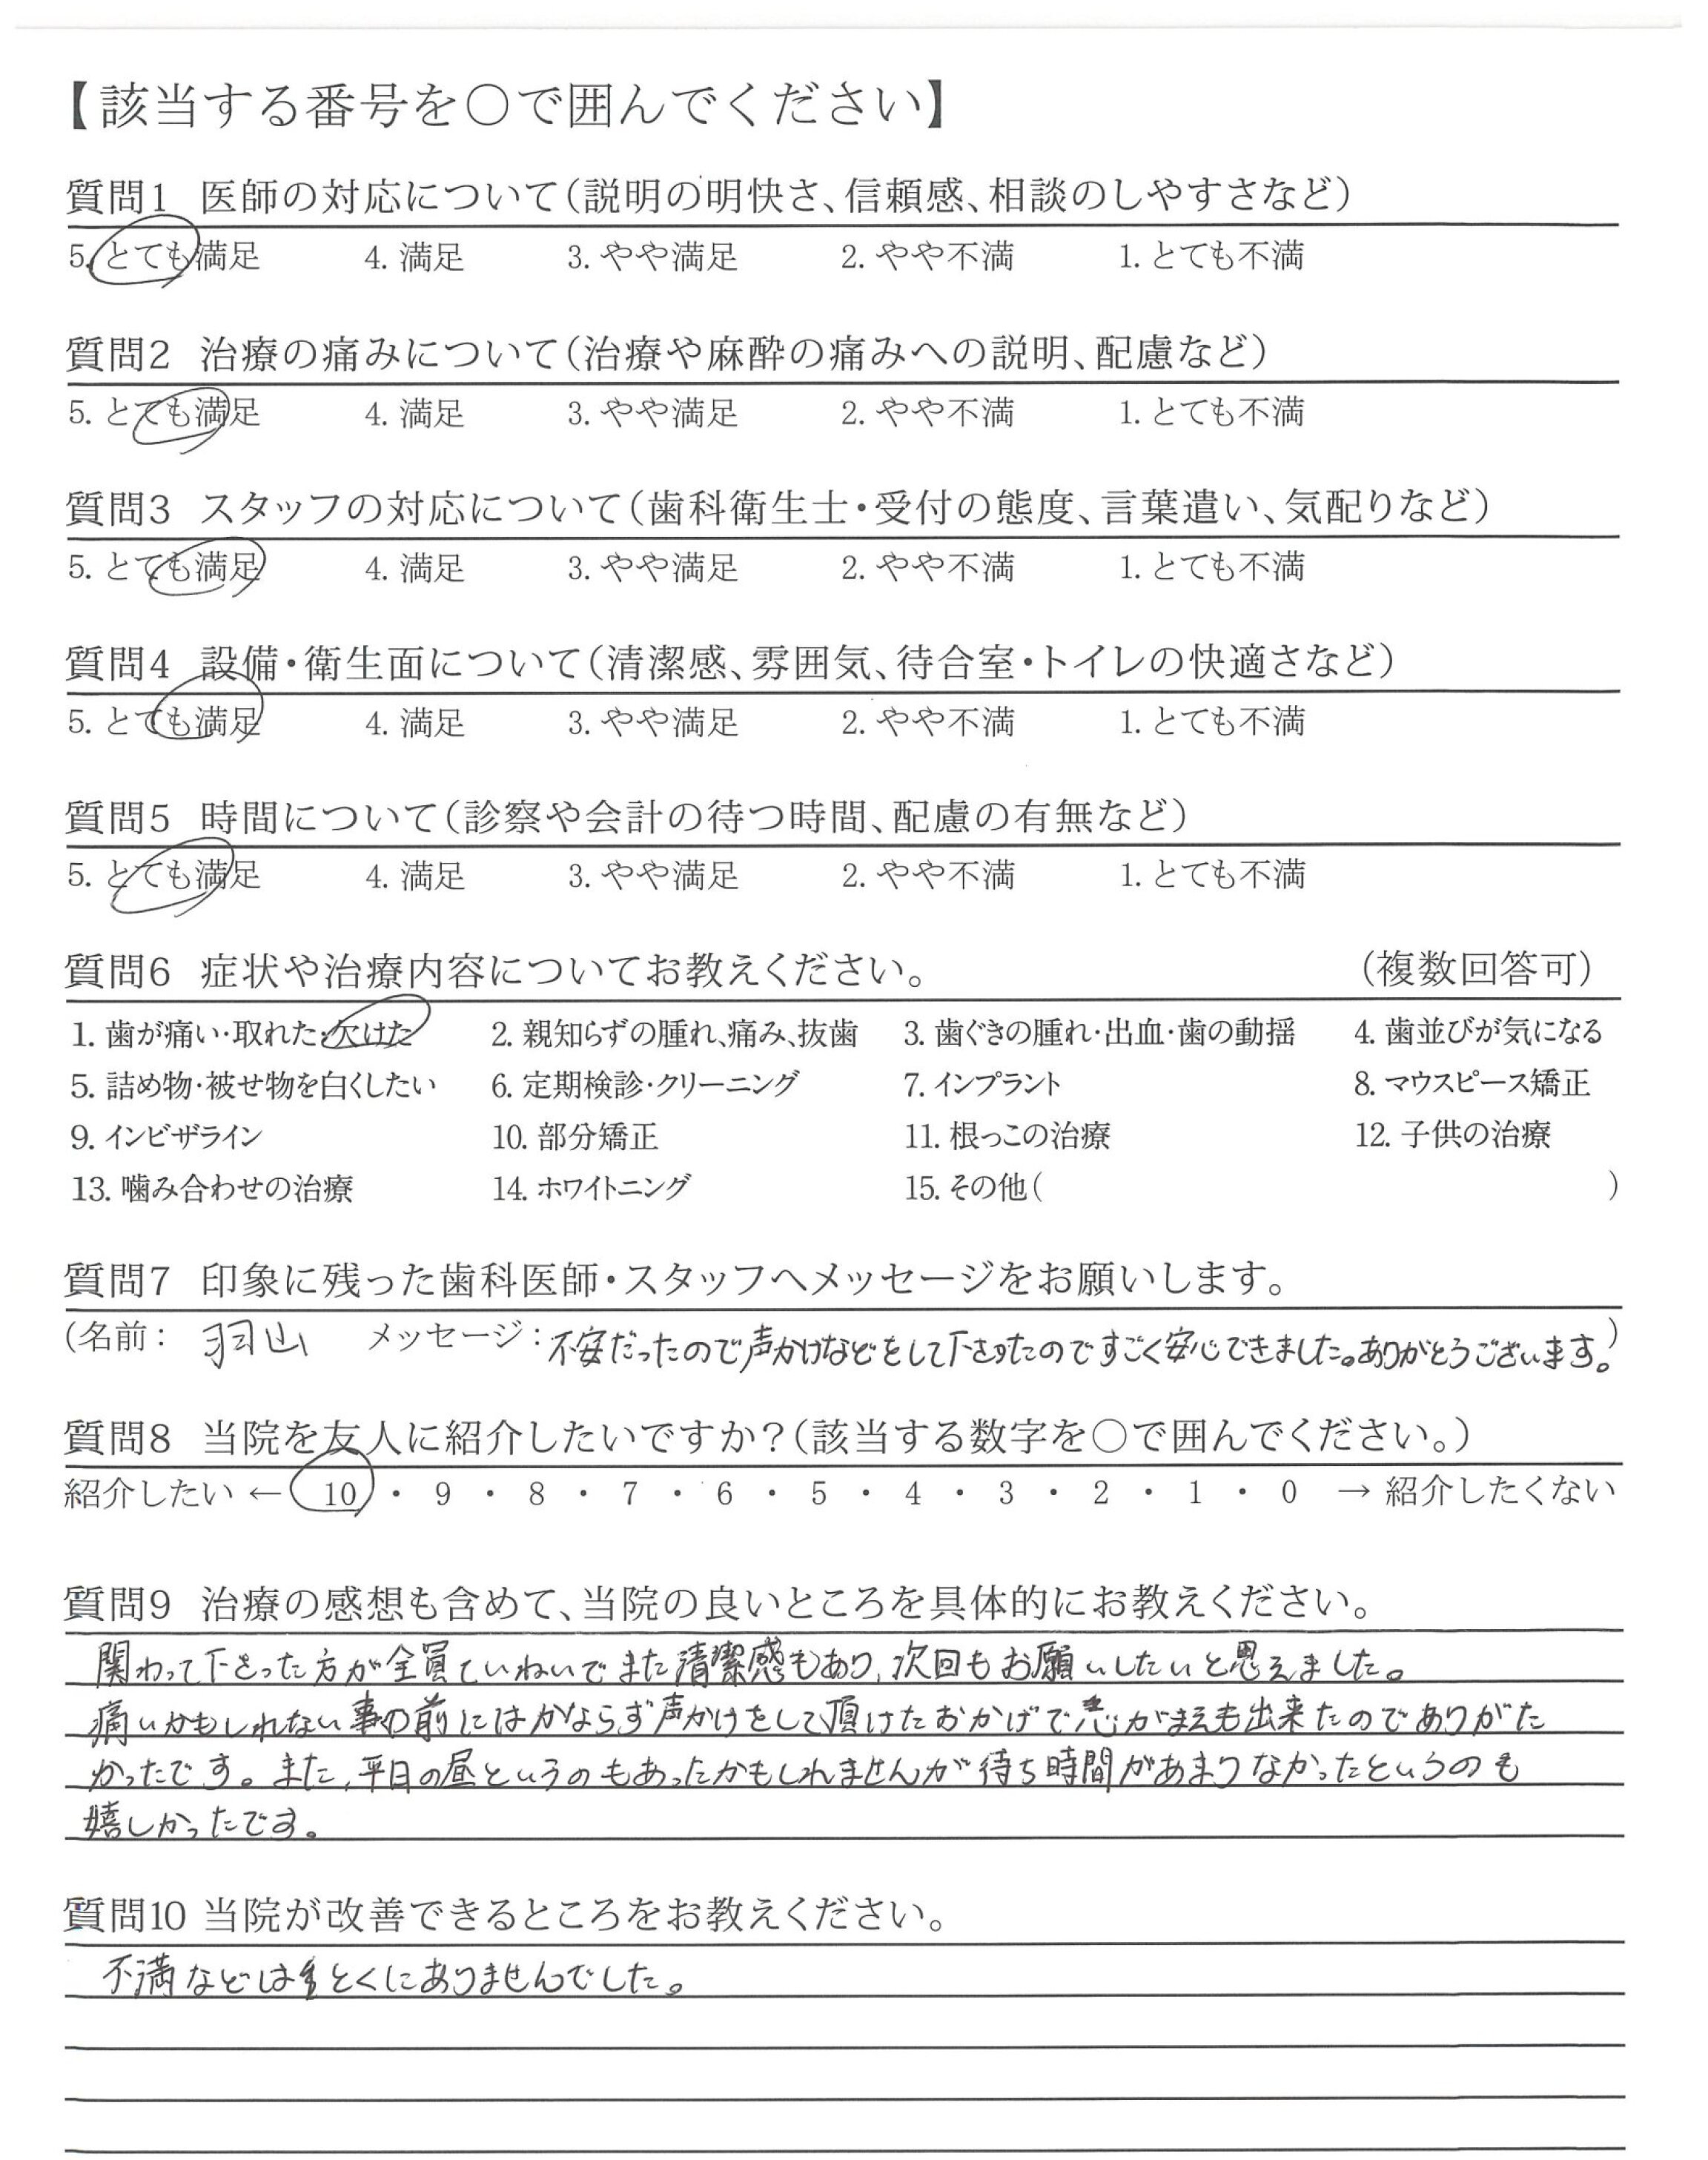 【該当する番号を○で囲んでください】
質問1 医師の対応について(説明の明快さ、信頼感、相談のしやすさなど)
5. とても満足 4. 満足 3. やや満足 2. やや不満 1. とても不満
質問2 治療の痛みについて(治療や麻酔の痛みへの説明、配慮など)
5. とても満足 4. 満足 3. やや満足 2. やや不満 1. とても不満
質問3 スタッフの対応について(歯科衛生士・受付の態度、言葉遣い、気配りなど)
5. とても満足 4. 満足 3. やや満足 2. やや不満 1. とても不満
質問4 設備・衛生面について(清潔感、雰囲気、待合室・トイレの快適さなど)
5. とても満足 4. 満足 3. やや満足 2. やや不満 1. とても不満
質問5 時間について(診察や会計の待つ時間、配慮の有無など)
5. とても満足 4. 満足 3. やや満足 2. やや不満 1. とても不満
質問6 症状や治療内容についてお教えください。 (複数回答可)
1. 歯が痛い・取れた・欠けた 2. 親知らずの腫れ、痛み、抜歯 3. 歯ぐきの腫れ・出血・歯の動揺 4. 歯並びが気になる
5. 詰め物・被せ物を白くしたい 6. 定期検診・クリーニング 7. インプラント 8. マウスピース矯正
9. インビザライン 10. 部分矯正 11. 根っこの治療 12. 子供の治療
13. 噛み合わせの治療 14. ホワイトニング 15. その他( )
質問7 印象に残った歯科医師・スタッフへメッセージをお願いします。
(名前: 羽山 メッセージ: 不安だったので声かけなどをして下さったのですごく安心できました。ありがとうございます。)
質問8 当院を友人に紹介したいですか?(該当する数字を○で囲んでください。)
紹介したい ← 10 ・ 9 ・ 8 ・ 7 ・ 6 ・ 5 ・ 4 ・ 3 ・ 2 ・ 1 ・ 0 → 紹介したくない
質問9 治療の感想も含めて、当院の良いところを具体的にお教えください。
関わって下さった方が全員ていねいでまた清潔感もあり、次回もお願いしたいと思えました。
痛いかもしれない事の前にはかならず声かけをして頂けたおかげで心がまえも出来たのでありがた
かったです。また、平日の昼というのもあったかもしれませんが待ち時間があまりなかったというのも
嬉しかったです。
質問10 当院が改善できるところをお教えください。
不満などはとくにありませんでした。